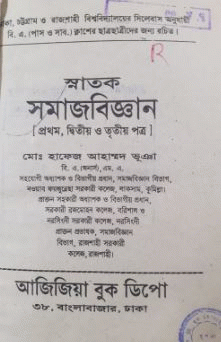 ঢাকা, চট্টগ্রাম ও রাজশাহী বিশ্ববিদ্যালয়ের সিলেবাস অনুযায়ী
বি. এ. (পাস ও সাব.) ক্লাশের ছাত্রছাত্রীদের জন্য রচিত।
R
স্নাতক
সমাজবিজ্ঞান
[প্রথম, দ্বিতীয় ও তৃতীয় পত্র]
মোঃ হাফেজ আহাম্মদ ভূঞা
বি. এ. (অনার্স), এম. এ.
সহযোগী অধ্যাপক ও বিভাগীয় প্রধান, সমাজবিজ্ঞান বিভাগ,
নওয়াব ফয়জুন্নেছা সরকারী কলেজ, লাকসাম, কুমিল্লা।
প্রাক্তন সহকারী অধ্যাপক ও বিভাগীয় প্রধান,
সরকারী ব্রজমোহন কলেজ, বরিশাল ও
নরসিংদী সরকারী কলেজ, নরসিংদী
প্রাক্তন প্রভাষক, সমাজবিজ্ঞান
বিভাগ, রাজশাহী সরকারী
কলেজ, রাজশাহী।
আজিজিয়া বুক ডিপো
৩৮, বাংলাবাজার, ঢাকা